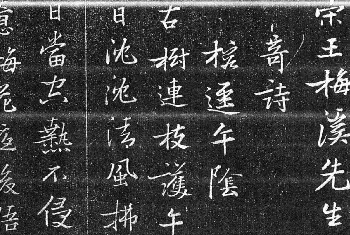 宋王梅溪先生
奇詩
榕逕午陰
古樹連枝護午
日沈沈清風拂
日當空熱不侵
梅花